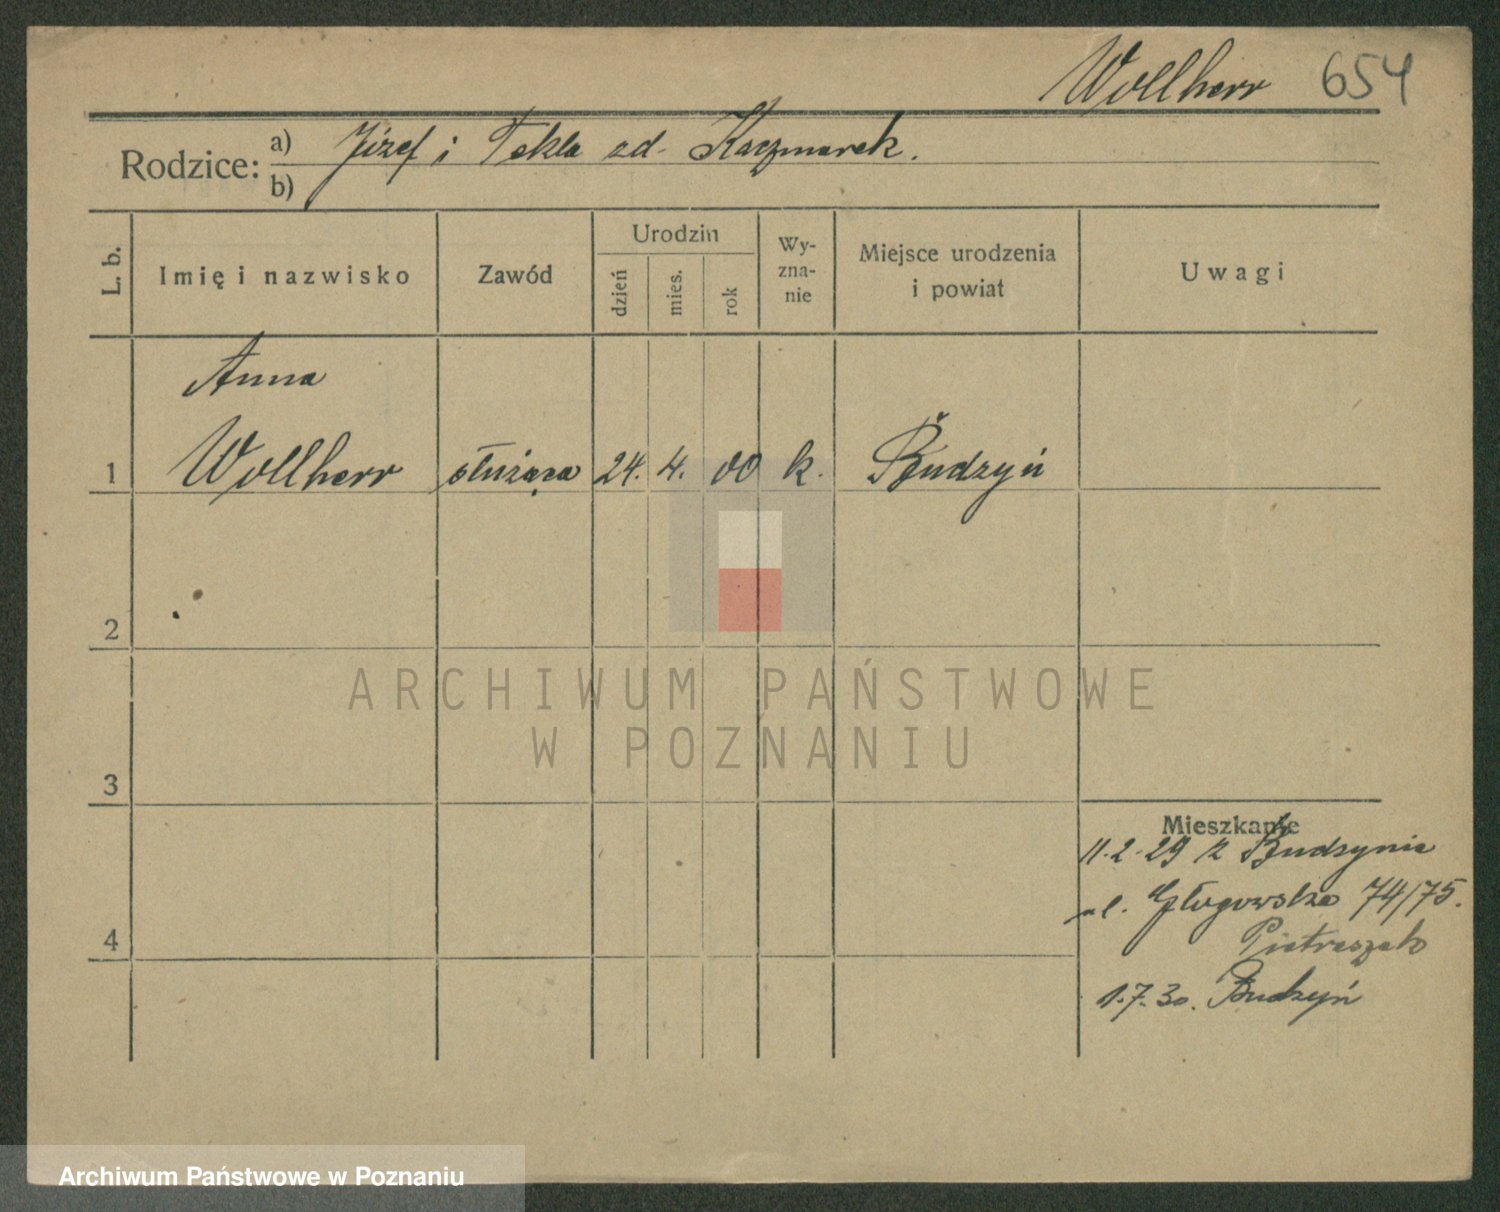 Wollherr 654
Rodzice: a) Józef i Tekla zd. Kaczmarek.
b)
L. b.
Imię i nazwisko
Zawód
Urodzin
dzień
mies.
rok
Wy-
zna-
nie
Miejsce urodzenia
i powiat
Uwagi
Anna
1 Wollherr służąca 24. 4. 00 k. Budzyń
2
3
4
Mieszkanie
11.2.29 z Budzynia
ul. Głogowska 74/75.
Pietraszak
1.7.30. Budzyń
ARCHIWUM PAŃSTWOWE
W POZNANIU
Archiwum Państwowe w Poznaniu